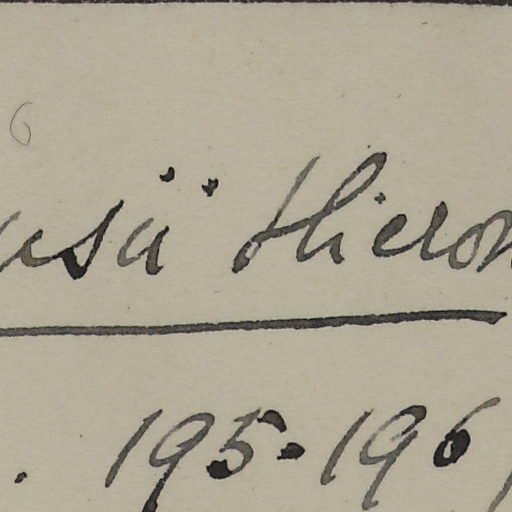 usä Hieron
. 195-196